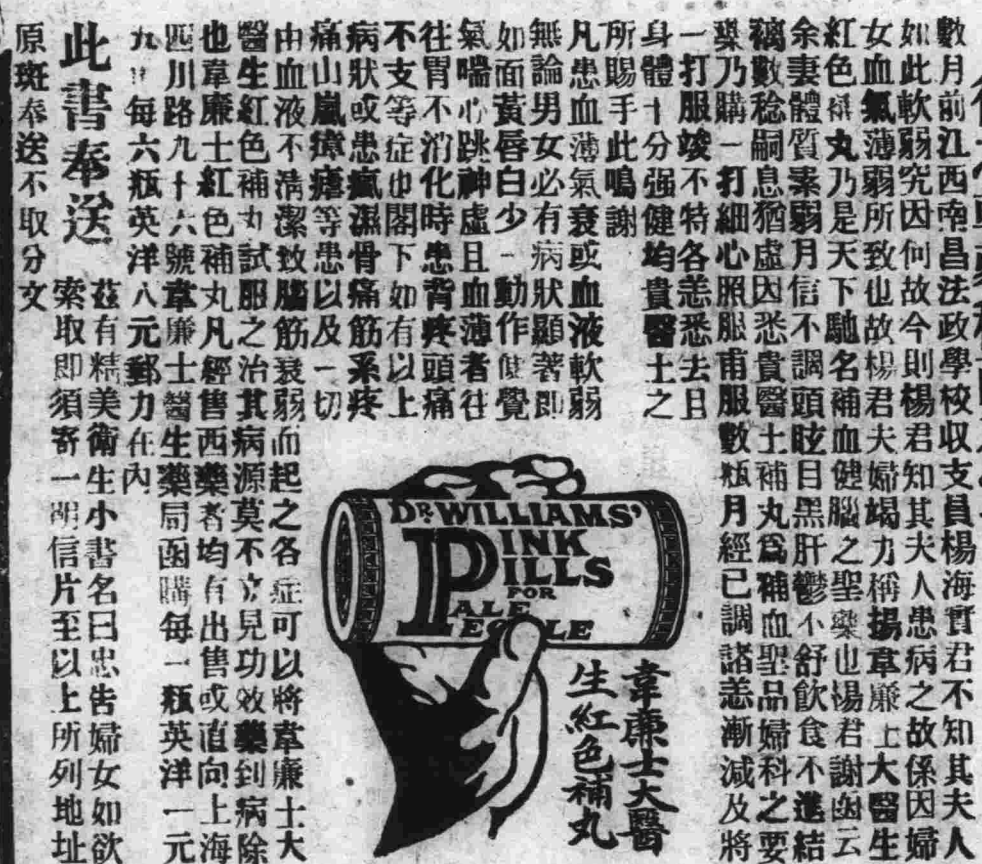 數月前江西南昌法政學校収支員楊海賓君不知其夫人
如此軟弱究因何故今則楊君知其夫人患病之故係因婦
女血氣薄弱所致也故楊君夫婦竭力稱揚韋廉士大醫生
紅色補丸乃是天下馳名補血健腦之聖藥也楊君謝函云
余妻體質素弱月信不調頭眩目黑肝鬱不舒飲食不進結
褵數稔嗣息猶虛因悉貴醫士補丸爲補血聖品婦科之要
藥乃購一打細心照服甫服數瓶月經已調諸恙漸減及將
一打服竣不特各恙悉去且
身體十分强健均貴醫士之
所賜手此鳴謝
凡患血薄氣衰或血液軟弱
無論男女必有病狀顯著即
如面黃唇白少一動作便覺
氣喘心跳神虛且血薄者往
往胃不消化時患背疼頭痛
不支等症也閣下如有以上
病狀或患瘋濕骨痛筋系疼
痛山嵐瘴瘧等患以及一切
由血液不淸潔致腦筋衰弱而起之各症可以將韋廉士大
醫生紅色補丸試服之治其病源莫不立見功效藥到病除
也韋廉士紅色補丸凡經售西藥者均有出售或直向上海
四川路九十六號韋廉士醫生藥局函購每一瓶英洋一元
九每六瓶英洋八元郵力在內
此書奉送
茲有精美衛生小書名曰忠告婦女如欲
索取即須寄一明信片至以上所列地址
原班奉送不取分文
DR. WILLIAMS'
PINK
PILLS
FOR
PALE
PEOPLE
韋廉士大醫
生紅色補丸